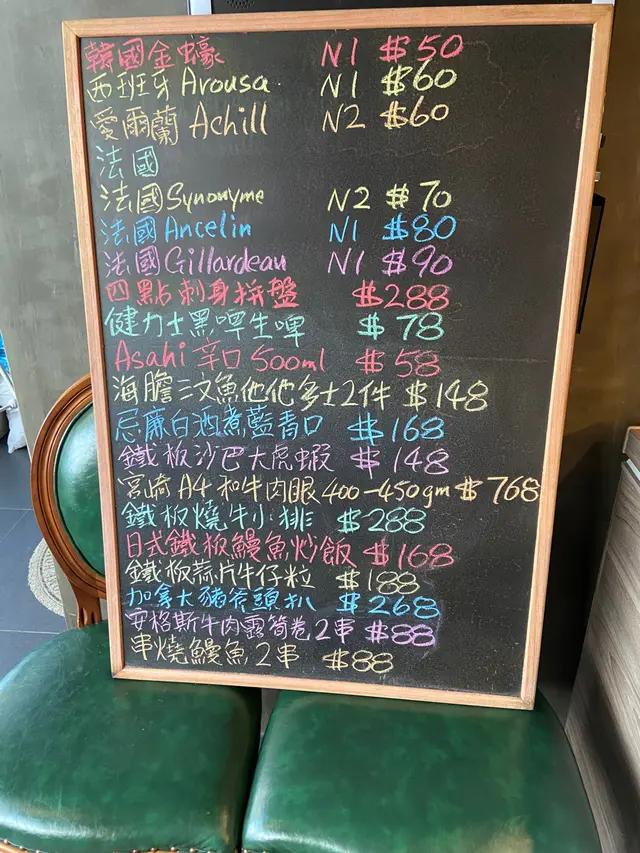 韓國金蠔 N1 $50
西班牙 Arousa N1 $60
愛爾蘭 Achill N2 $60
法國
法國Synonyme N2 $70
法國Ancelin N1 $80
法國Gillardeau N1 $90
四點刺身拼盤 $288
健力士黑啤生啤 $78
Asahi 辛口 500ml $58
海膽三文魚他他多士2件 $148
忌廉白酒煮藍青口 $168
鐵板沙巴大虎蝦 $148
宮崎 A4 和牛肉眼 400-450gm $768
鐵板燒牛小排 $288
日式鐵板鰻魚炒飯 $168
鐵板蒜片牛仔粒 $188
加拿大豬斧頭扒 $268
安格斯牛肉露筍卷2串 $88
串燒鰻魚2串 $88